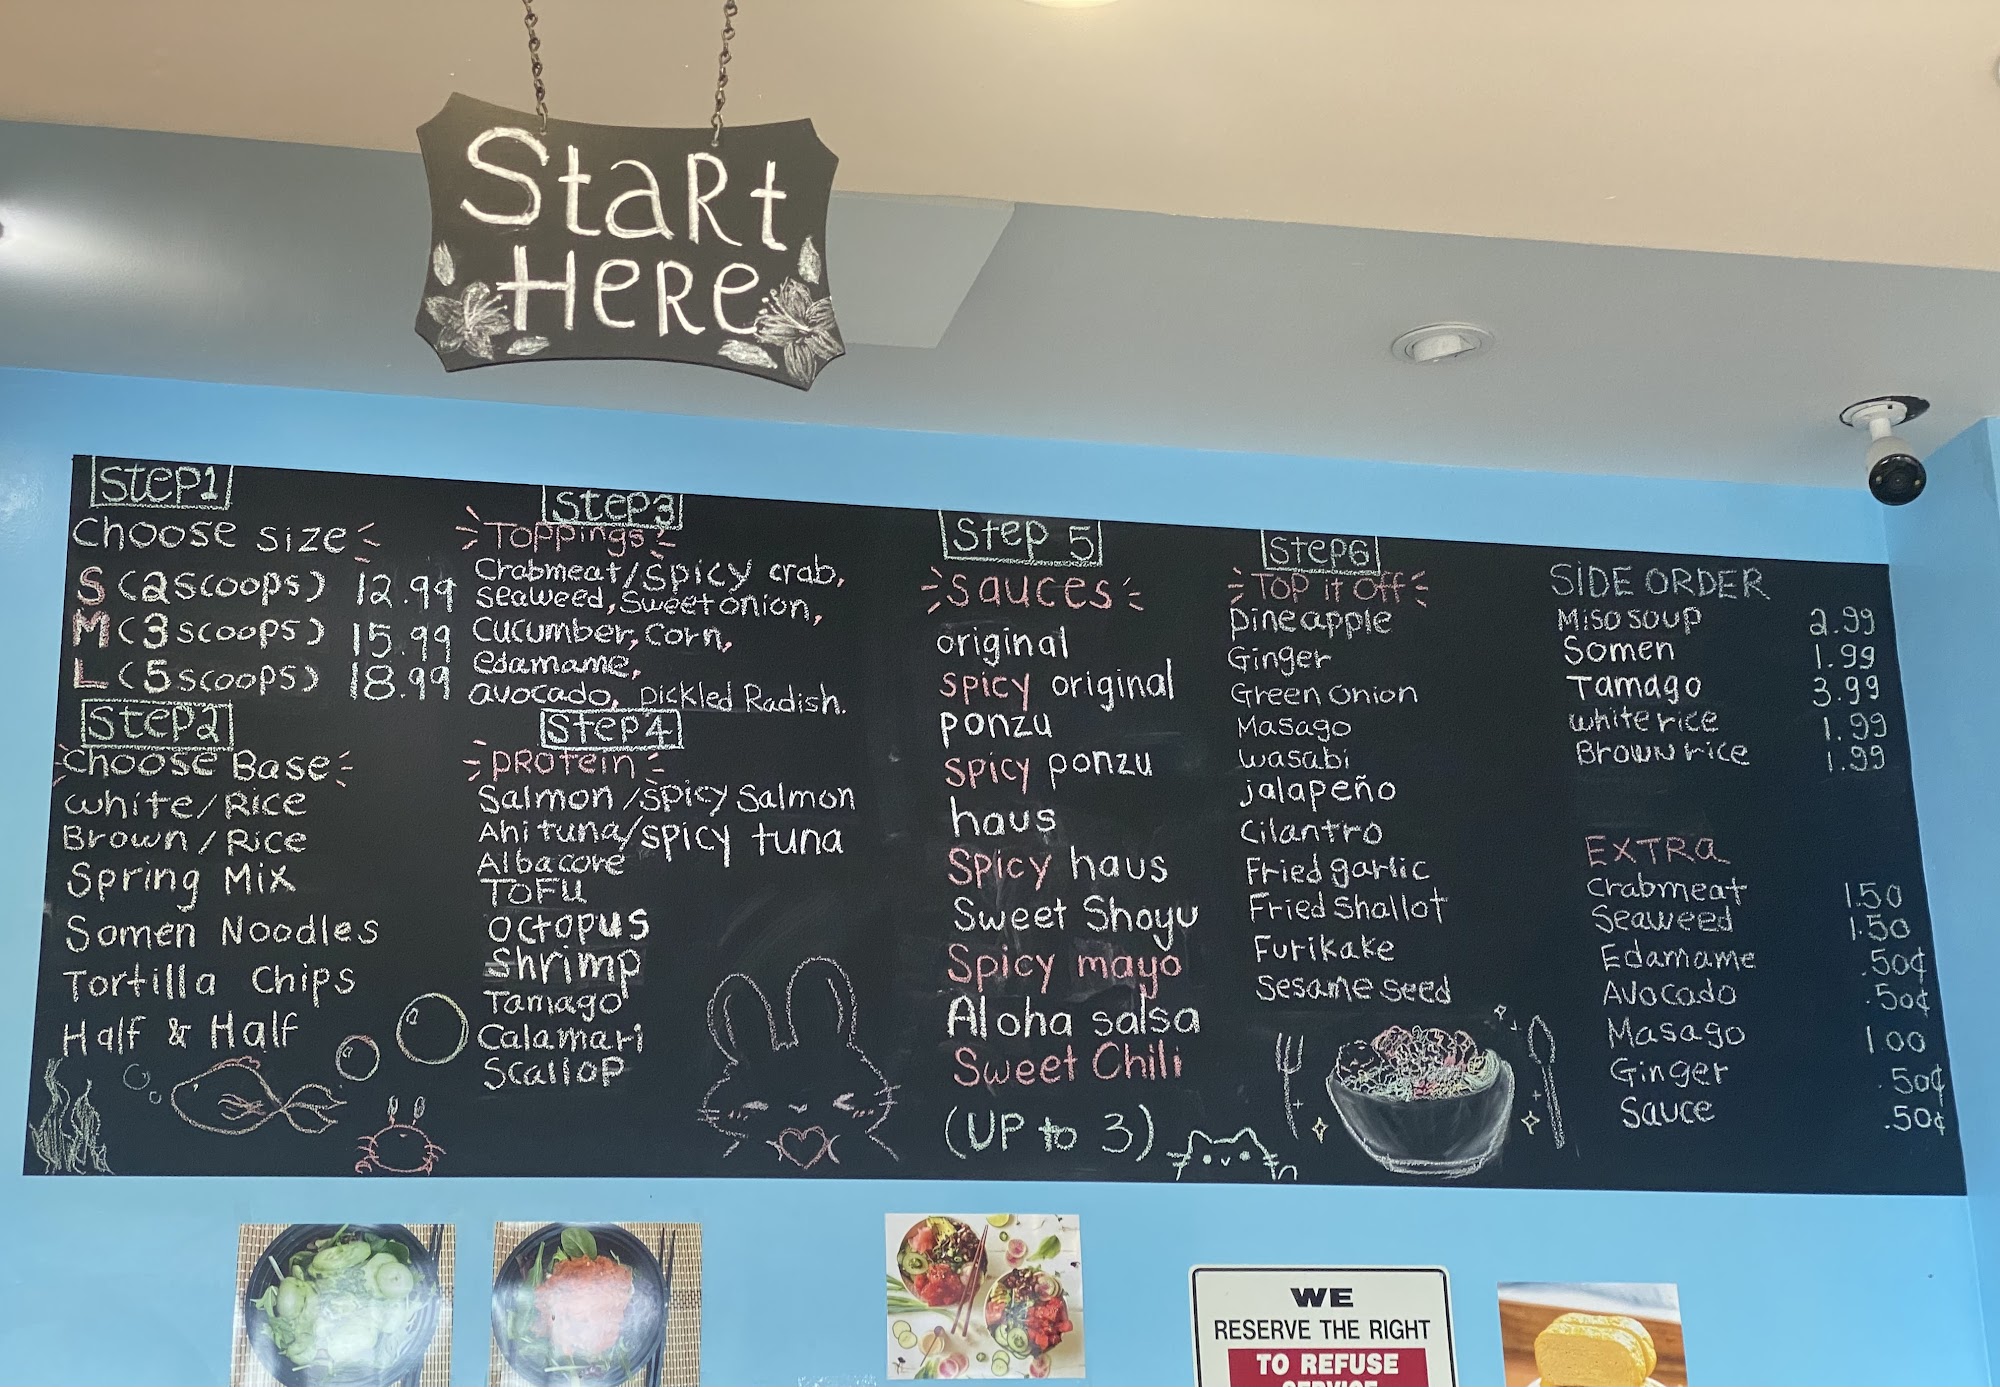 Start
Here
Step1
Choose size
S (2 scoops) 12.99
M (3 scoops) 15.99
L (5 scoops) 18.99
Step2
Choose Base
White/Rice
Brown/Rice
Spring Mix
Somen Noodles
Tortilla Chips
Half & Half
Step3
Toppings
Crabmeat/spicy crab,
seaweed, sweet onion,
cucumber, corn,
edamame,
avocado, Pickled Radish.
Step4
Protein
Salmon/spicy Salmon
Ahi tuna/spicy tuna
Albacore
TOFU
Octopus
Shrimp
Tamago
Calamari
Scallop
Step 5
sauces
original
spicy original
ponzu
spicy ponzu
haus
Spicy haus
Sweet Shoyu
Spicy mayo
Aloha salsa
Sweet Chili
(UP to 3)
Step6
TOP it OFF
Pineapple
Ginger
Green Onion
Masago
wasabi
jalapeño
Cilantro
Fried garlic
Fried Shallot
Furikake
Sesame seed
SIDE ORDER
Miso soup 2.99
Somen 1.99
Tamago 3.99
white rice 1.99
Brown rice 1.99
EXTRA
crabmeat 1.50
Seaweed 1.50
Edamame .50¢
Avocado .50¢
Masago 1.00
Ginger .50¢
Sauce .50¢
WE
RESERVE THE RIGHT
TO REFUSE
SERVICE